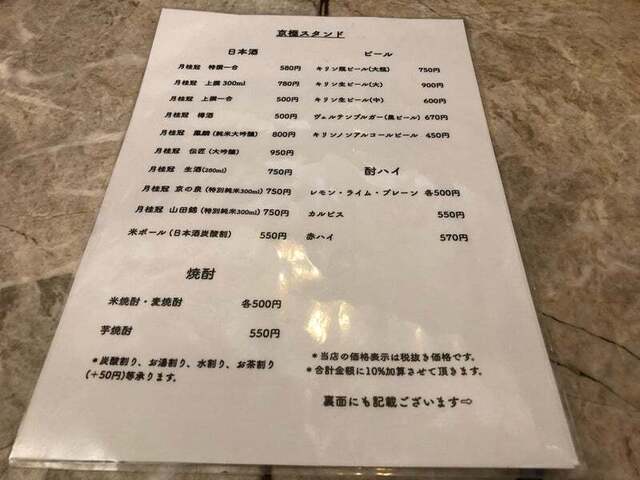 京極スタンド
日本酒
月桂冠 特撰一合 580円
月桂冠 上撰 300ml 780円
月桂冠 上撰一合 500円
月桂冠 樽酒 500円
月桂冠 鳳麟 (純米大吟醸) 800円
月桂冠 伝匠 (大吟醸) 950円
月桂冠 生酒(280ml) 750円
月桂冠 京の泉 (特別純米300ml) 750円
月桂冠 山田錦 (特別純米300ml) 750円
米ボール (日本酒炭酸割) 550円
焼酎
米焼酎・麦焼酎 各500円
芋焼酎 550円
*炭酸割り、お湯割り、水割り、お茶割り
(+50円)等承ります。
ビール
キリン瓶ビール(大瓶) 750円
キリン生ビール(大) 900円
キリン生ビール(中) 600円
ヴェルテンブルガー(黒ビール) 670円
キリンノンアルコールビール 450円
酎ハイ
レモン・ライム・プレーン 各500円
カルピス 550円
赤ハイ 570円
*当店の価格表示は税抜き価格です。
*合計金額に10%加算させて頂きます。
裏面にも記載ございます⇨